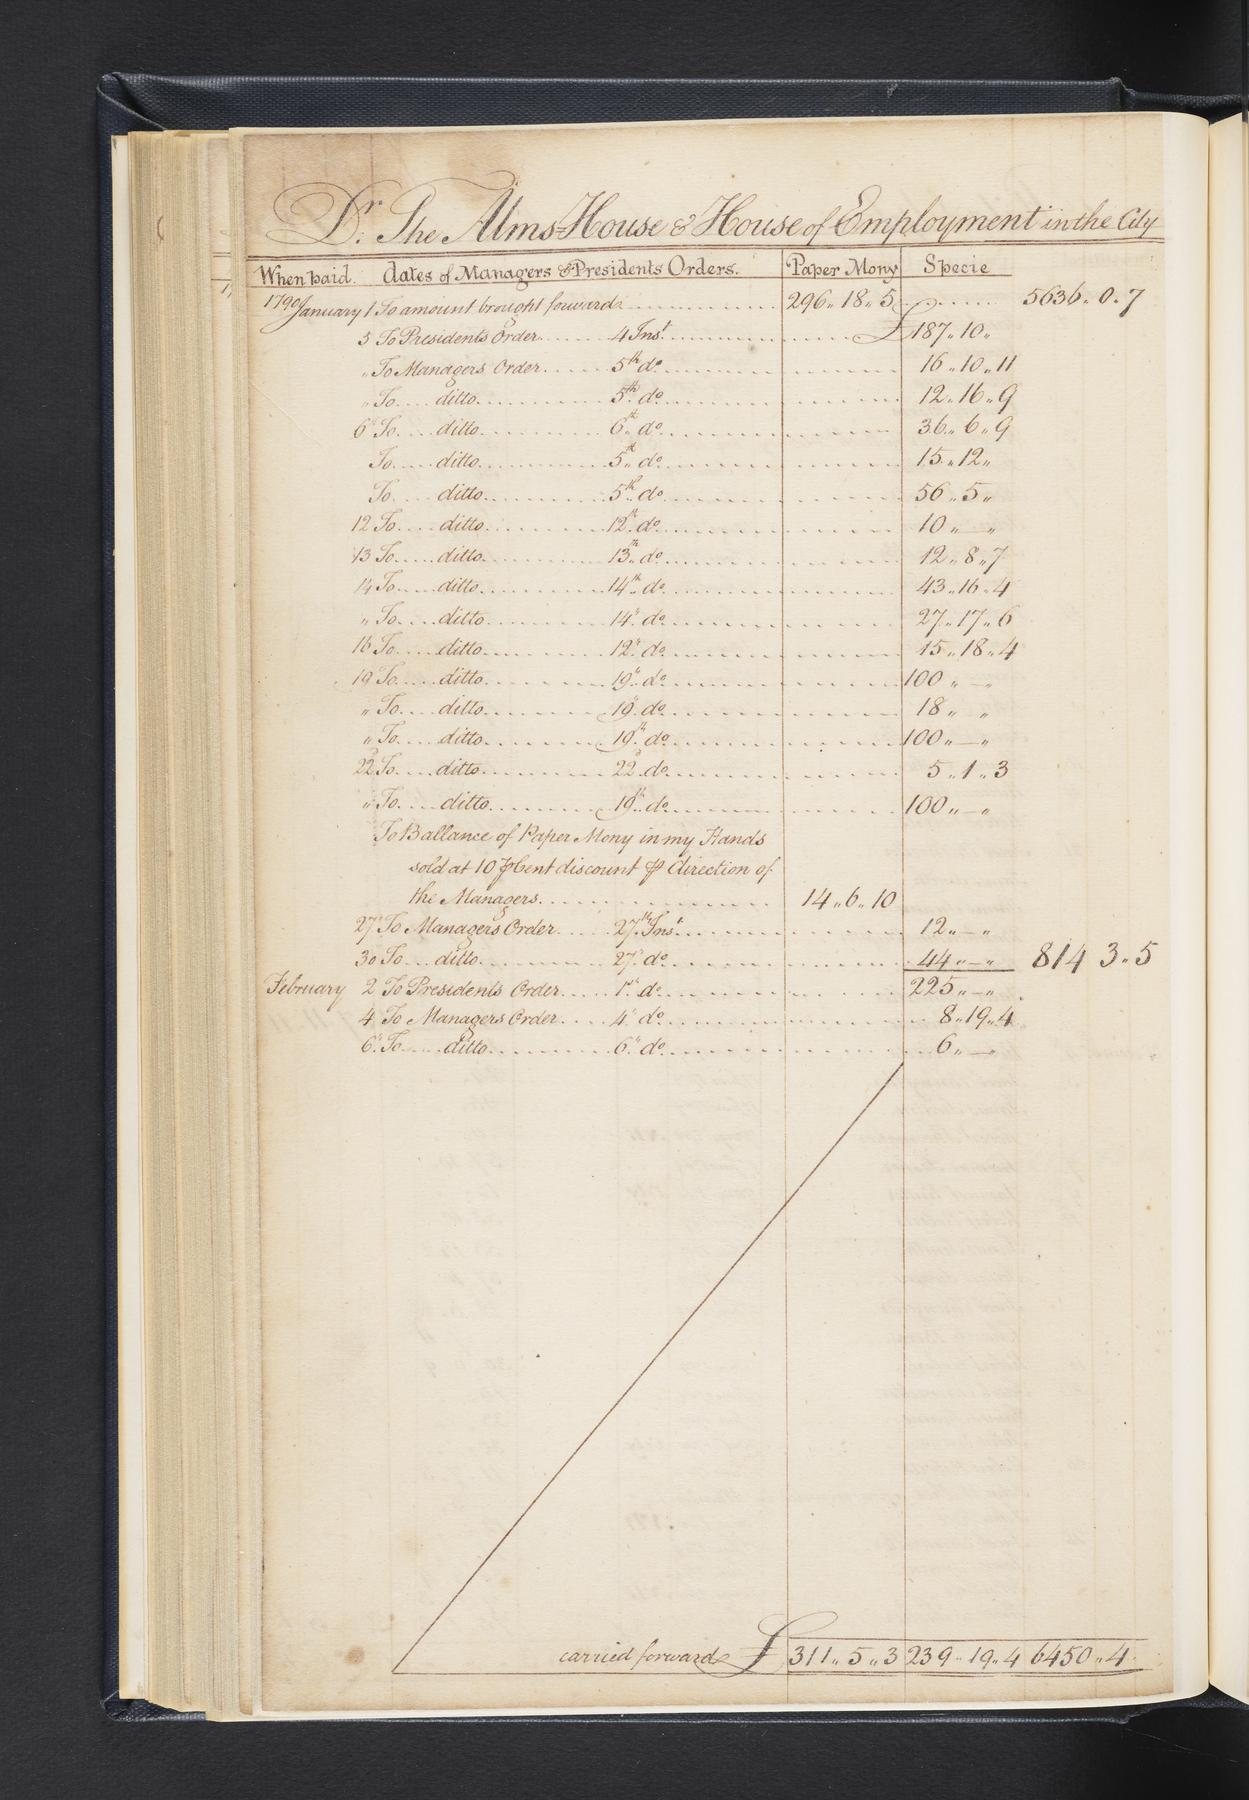 Dr. The Alms House & House of Employment in the City
When paid. dates of Managers & Presidents Orders. Paper Mony Specie
1790 January 1 To amount brought forward 296.. 18.. 5 5636.. 0.. 7
5 To Presidents Order 4 Inst. £187.. 10..
" To Managers Order 5th do. 16.. 10.. 11
" To ditto 5th do. 12.. 16.. 9
6th To ditto 6th do. 36.. 6.. 9
To ditto 5th do. 15.. 12..
To ditto 5th do. 56.. 5..
12 To ditto 12th do. 10.. — ..
13 To ditto 13th do. 12.. 8.. 7
14 To ditto 14th do. 43.. 16.. 4
" To ditto 14th do. 27.. 17.. 6
16 To ditto 12th do. 15.. 18.. 4
19 To ditto 19th do. 100.. — ..
" To ditto 19 do. 18.. ..
" To ditto 19th do. 100.. — ..
22 To ditto 22d do. 5.. 1.. 3
" To ditto 19th do. 100.. — ..
To Ballance of Paper Mony in my Hands
sold at 10 ⅌ Cent discount ⅌ direction of
the Managers 14.. 6.. 10
27th To Managers Order 27th Inst. 12.. — ..
30 To ditto 27th do. 44.. — .. 814 3.. 5
February 2 To Presidents Order 1st do. 225.. — ..
4 To Managers Order 4th do. 8.. 19.. 4
6th To ditto 6th do. 6.. — ..
carried forward £ 311.. 5.. 3 239.. 19.. 4 6450.. 4